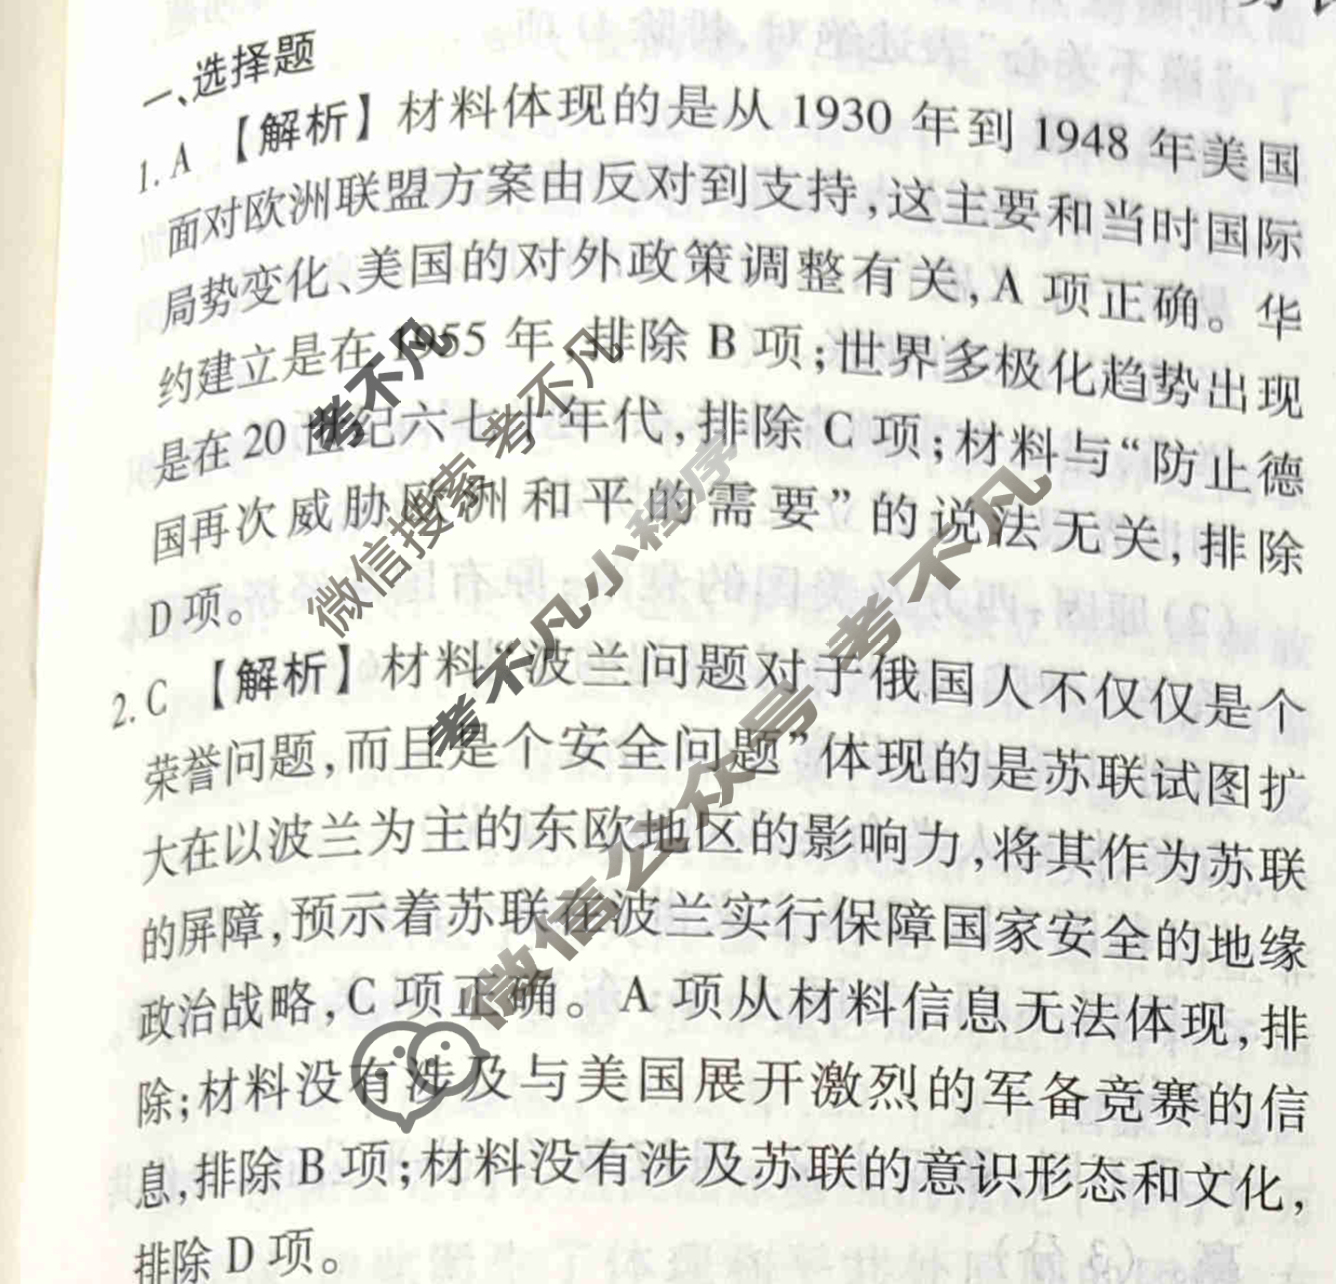 一、选择题
1. A 【解析】材料体现的是从 1930 年到 1948 年美国
面对欧洲联盟方案由反对到支持,这主要和当时国际
局势变化、美国的对外政策调整有关,A 项正确。华
约建立是在 1955 年,排除 B 项;世界多极化趋势出现
是在 20 世纪六七十年代,排除 C 项;材料与“防止德
国再次威胁欧洲和平的需要”的说法无关,排除
D 项。
2. C 【解析】材料“波兰问题对于俄国人不仅仅是个
荣誉问题,而且是个安全问题”体现的是苏联试图扩
大在以波兰为主的东欧地区的影响力,将其作为苏联
的屏障,预示着苏联在波兰实行保障国家安全的地缘
政治战略,C 项正确。A 项从材料信息无法体现,排
除;材料没有涉及与美国展开激烈的军备竞赛的信
息,排除 B 项;材料没有涉及苏联的意识形态和文化,
排除 D 项。
考不凡
微信搜索 考不凡
考不凡小程序
微信公众号 考不凡